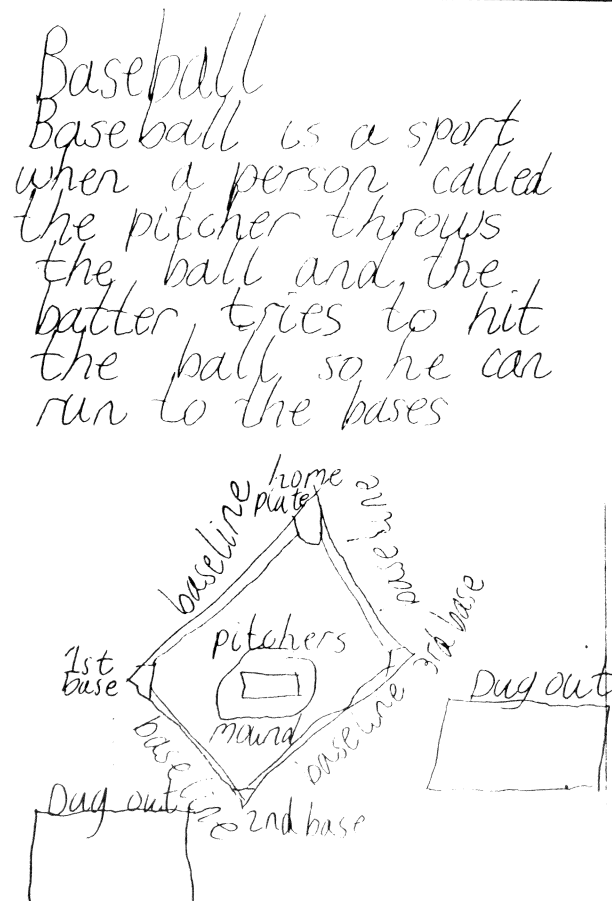 Baseball
Baseball is a sport
when a person called
the pitcher throws
the ball and the
batter tries to hit
the ball so he can
run to the bases
home
plate
baseline
baseline
pitchers
mound
1st
base
3rd base
baseline
baseline
2nd base
Dug out
Dug out